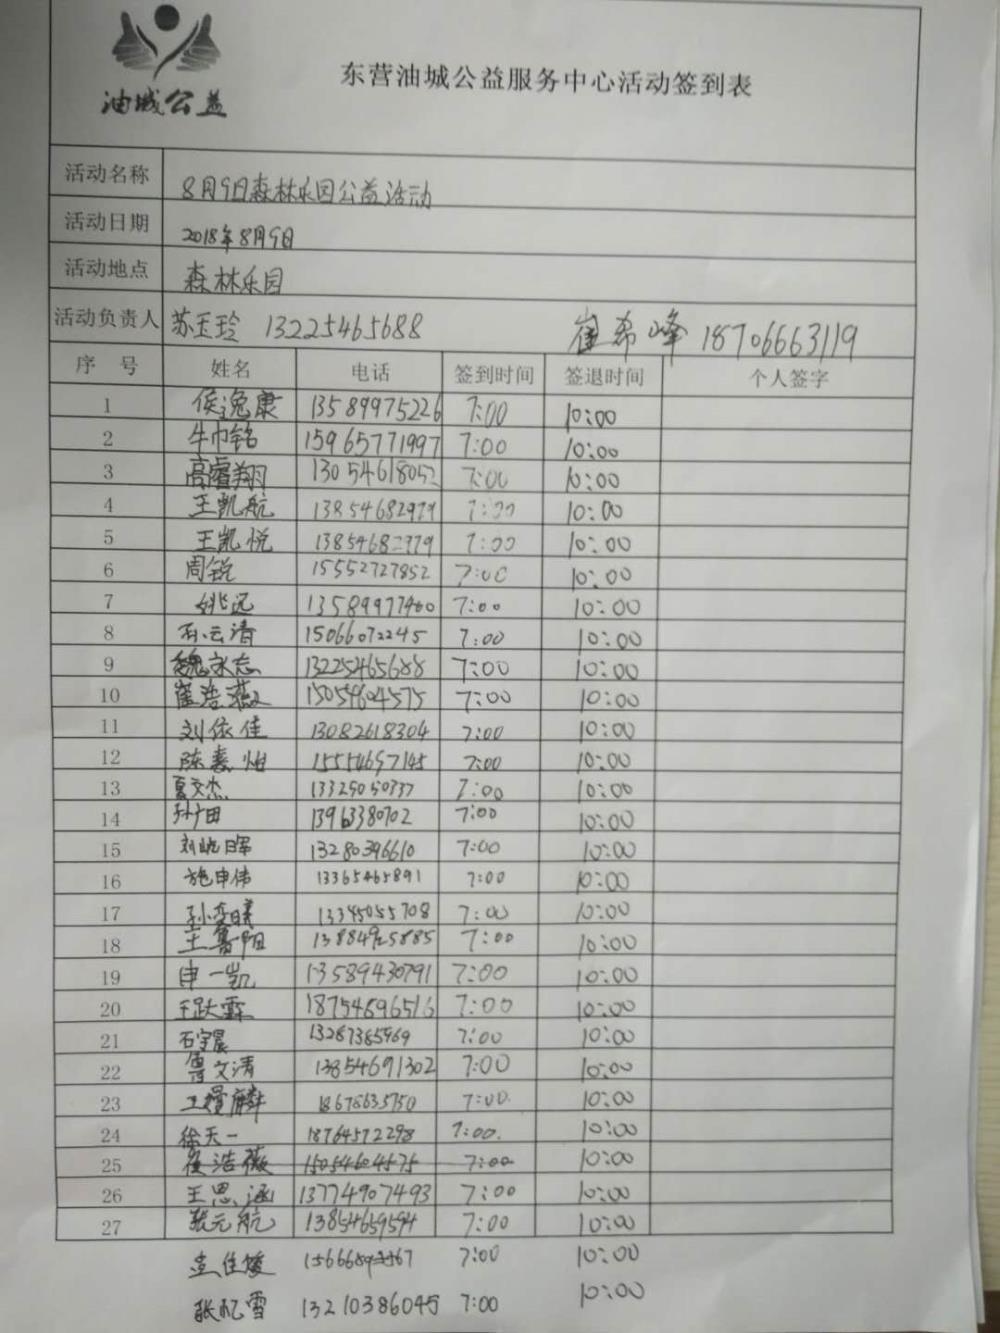 油城公益
东营油城公益服务中心活动签到表
活动名称 8月9日森林乐园公益活动
活动日期 2018年8月9日
活动地点 森林乐园
活动负责人 苏玉玲 13225465688 崔希峰 18706663119
序 号 姓名 电话 签到时间 签退时间 个人签字
1 侯逸康 13589975226 7:00 10:00
2 牛巾铭 15965771997 7:00 10:00
3 高睿翔 13054618052 7:00 10:00
4 王凯航 13854682979 7:00 10:00
5 王凯悦 7:00 10:00
6 周锐 15552727852 7:00 10:00
7 姚远 13589977400 7:00 10:00
8 孙云清 15066072245 7:00 10:00
9 魏永志 13225465688 7:00 10:00
10 15054604575 7:00 10:00
11 刘依佳 13082618304 7:00 10:00
12 15554697145 7:00 10:00
13 夏文杰 13325050337 7:00 10:00
14 孙广田 13963380702 7:00 10:00
15 13280396610 7:00 10:00
16 施申伟 13365465891 7:00 10:00
17 13345055708 7:00 10:00
18 13884925885 7:00 10:00
19 申一凯 13589430791 7:00 10:00
20 王跃霖 18754696516 7:00 10:00
21 石宇晨 13287385969 7:00 10:00
22 鲁文清 13854691302 7:00 10:00
23 18678635750 7:00 10:00
24 徐天一 18764572298 7:00 10:00
25 侯浩薇 15054604575 7:00 10:00
26 王思涵 13774907493 7:00 10:00
27 张元航 13854659594 7:00 10:00
7:00 10:00
13210386045 7:00 10:00